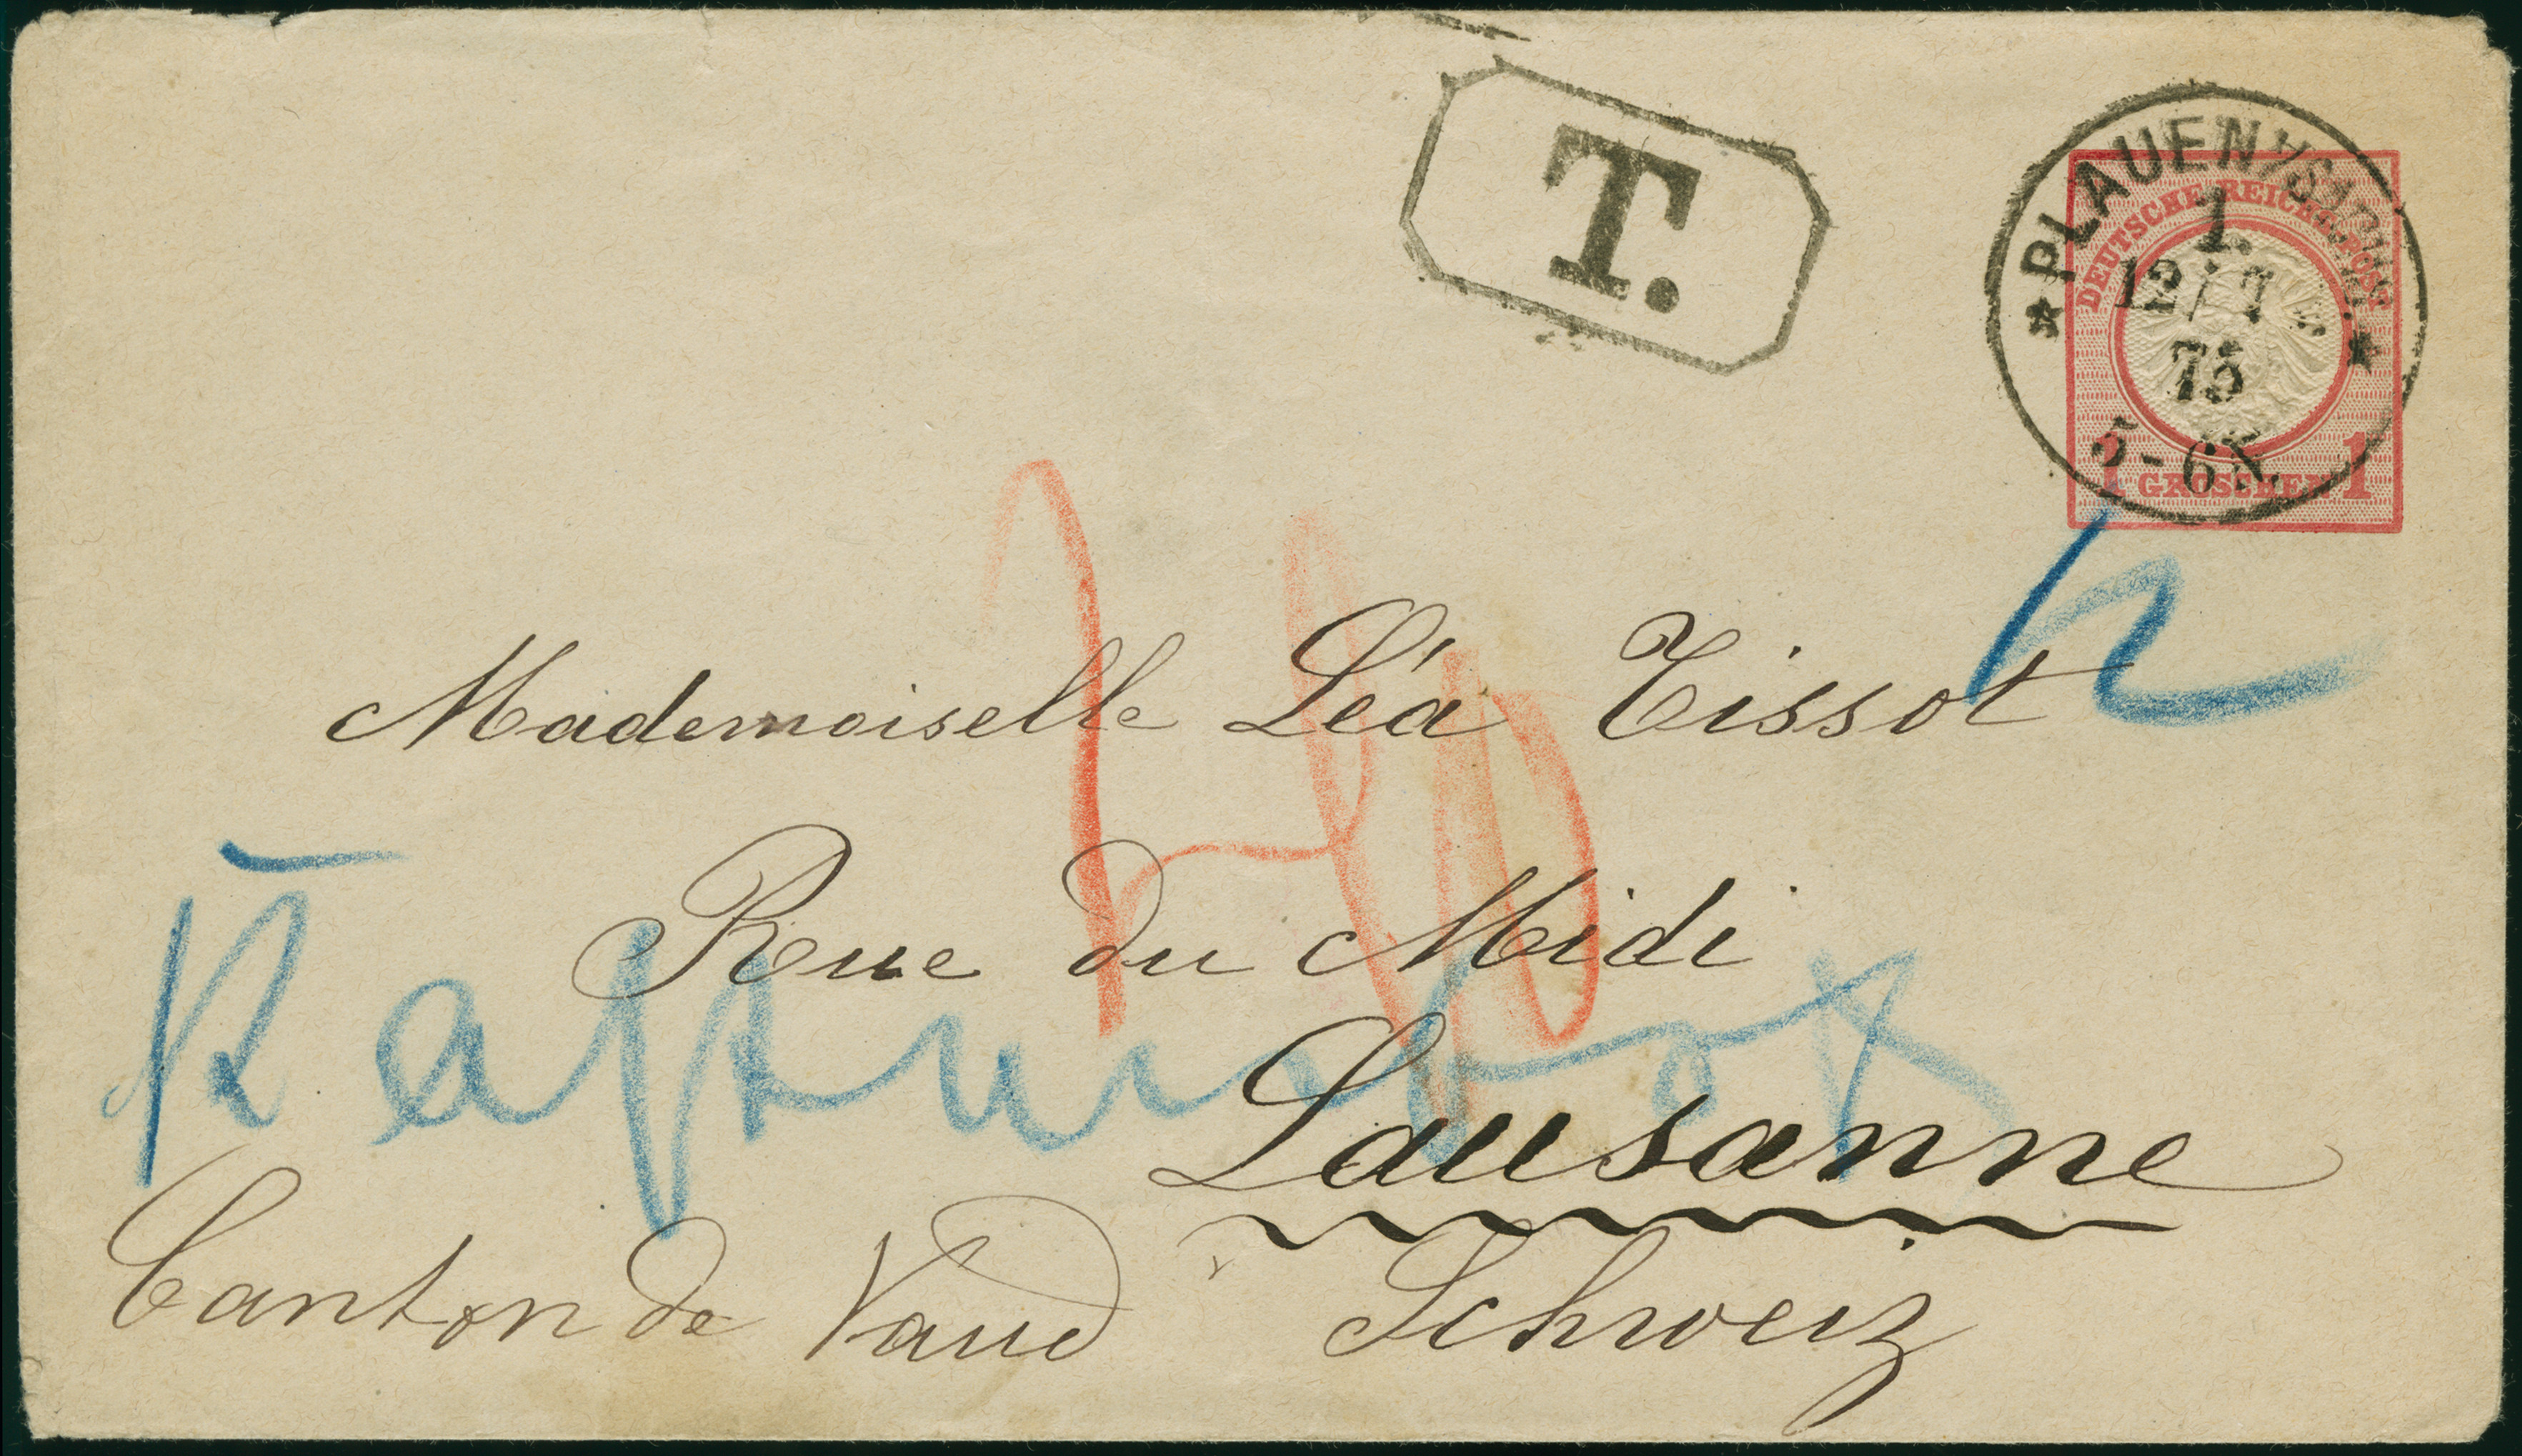 T.
PLAUEN
1.
12/7
75
5-6N.
DEUTSCHE REICHS-POST
1 GROSCHEN 1
Mademoiselle Léa Tissot
Rue du Midi
Lausanne
Canton de Vaud Schweiz